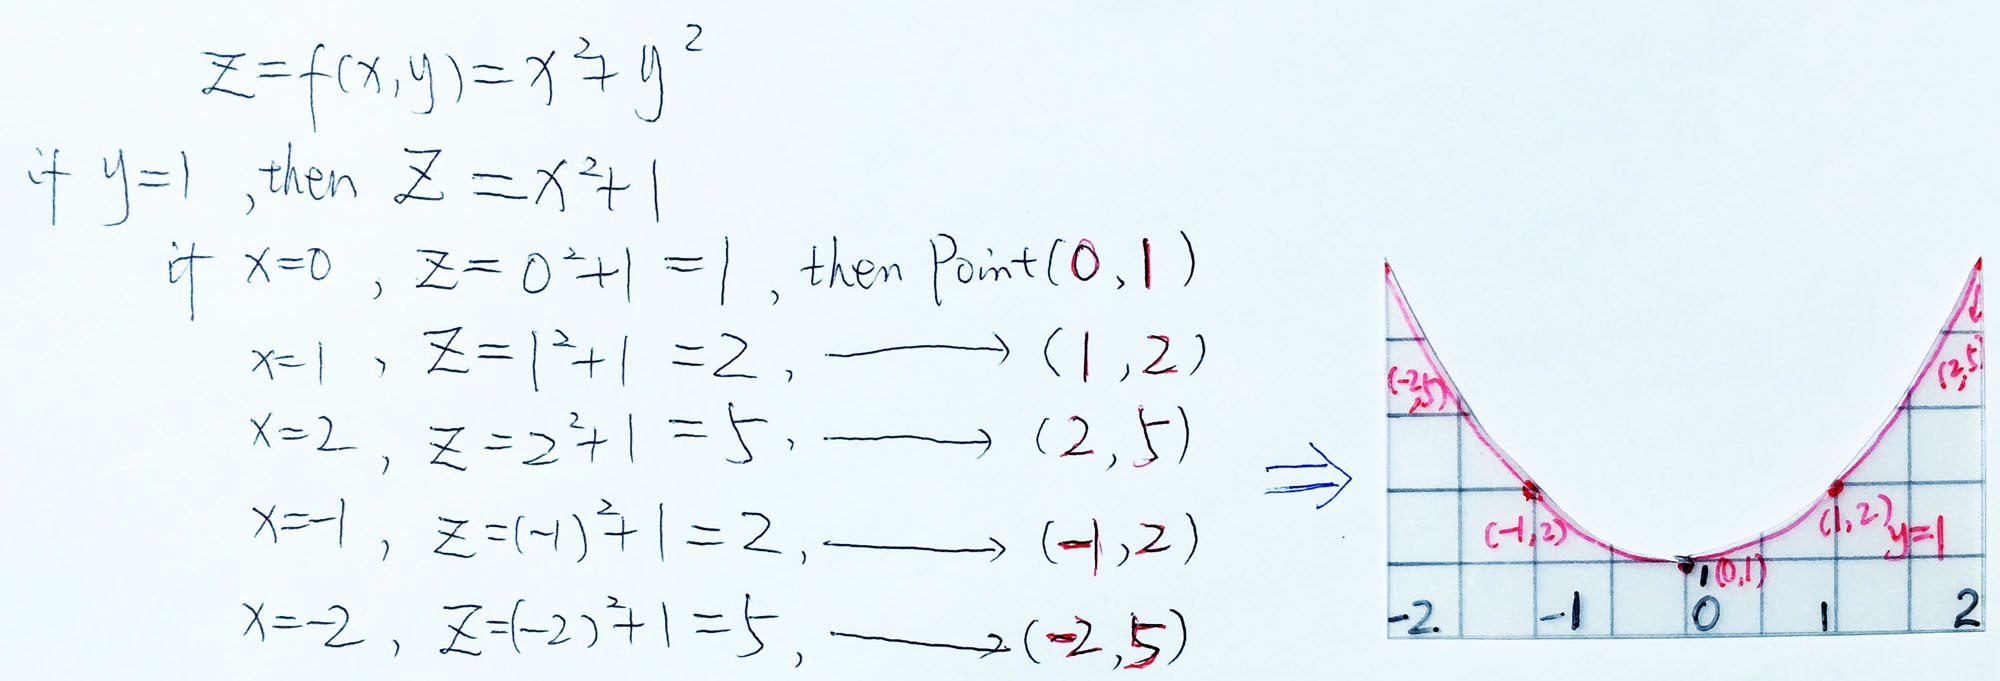 z=f(x,y)=x²+y²
if y=1, then z=x²+1
if x=0, z=0²+1=1, then Point(0,1)
x=1, z=1²+1=2, ⟶ (1,2)
x=2, z=2²+1=5, ⟶ (2,5)
x=-1, z=(-1)²+1=2, ⟶ (-1,2)
x=-2, z=(-2)²+1=5, ⟶ (-2,5)
⇒
(-2,5) (2,5)
(-1,2) (1,2) y=1
1 (0,1)
-2 -1 0 1 2